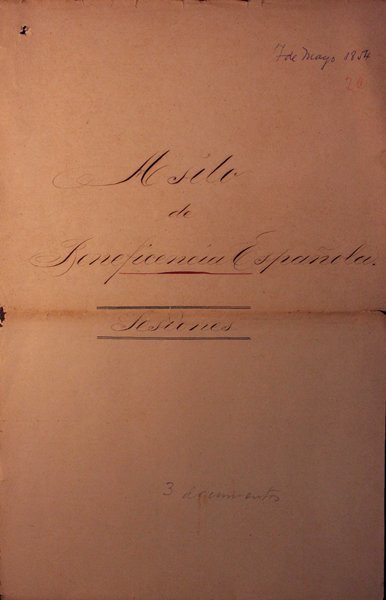 17 de Mayo 1854
29
Asilo
de
Beneficencia Española.
Sesiones
3 documentos